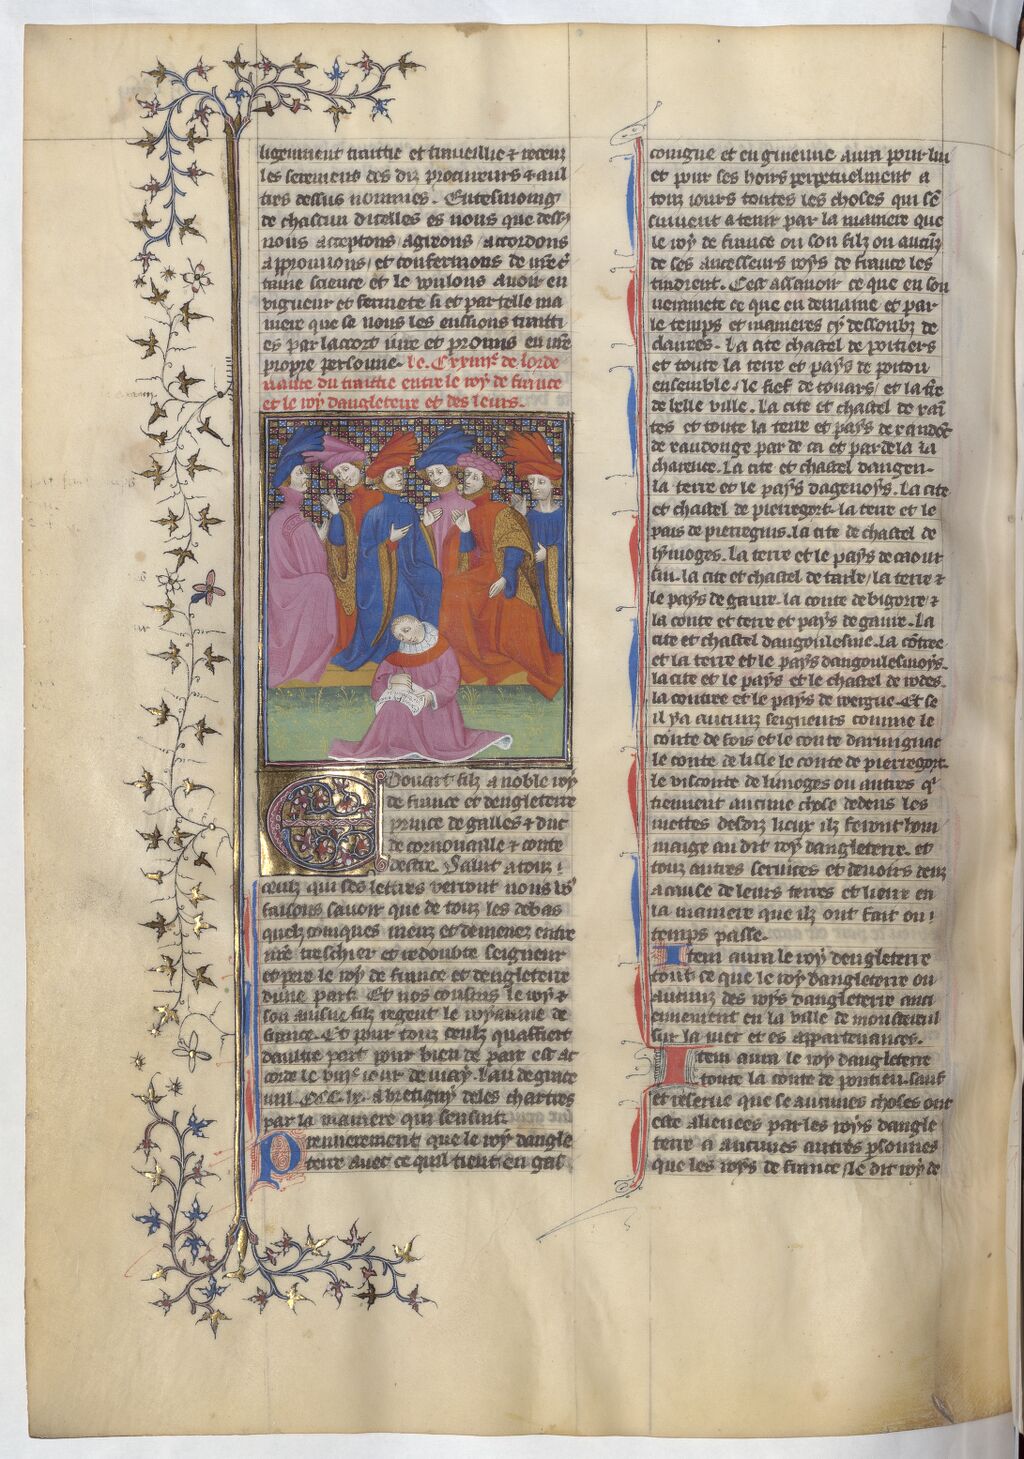 ligemment traittie et traveillie & receuz
les seremens des diz procureurs & aul
tres dessus nommes. En tesmoing
de chascun dicelles es nous que dess9
nous acceptons / agreons / accordons
approuuons / et confermons de nre c̃
taine science et le voulons auoir en
vigueur et fermete si et par telle ma
niere que se nous les eussions traitti
es par laccort vne et promis en nre
propre personne. le. de lorde
nance du traittie entre le roy de france
et le roy dangleterre et des leurs.
Edouart filz a noble roy
de france et dengleterre
prince de galles & duc
de cornouaille & conte
destre. Salut a touz
ceulz qui ses lettres verront nous vs
faisons sauoir que de touz les debas
quelzconques meuz et demenez entre
nre treschier et redoubte seigneur
et pere le roy de france et dengleterre
dune part. Et nos cousins le roy &
son ainsne filz regent le royaume de
france. Et pour touz ceulz
dautre part pour bien de paix est ac
corde le viije iour de may. lan de grace
mil. CCC. lx. a bretigny deles chartres
par la maniere qui sensuit.
Premierement que le roy dangle
terre auec ce quil tient en gas
coingne et en guienne aura pour lui
et pour ses hoirs perpetuelment a
touz iours toutes les choses qui sẽ
suiuent a tenir par la maniere que
le roy de france ou son filz ou aucũs
de ses ancesseurs roys de france les
tindrent. Cest assauoir ce que en sou
uerainete ce que en demaine et par
le temps et manieres cy dessoubz de
clairees. La cite chastel de poitiers
et toute la terre et pays de poitou
ensemble. le fief de touars / et la t̃re
de belle ville. La cite et chastel de xain
tes et toute la terre et pays de
de xaudonge par de ca et par dela la
charente. La cite et chastel dangen.
la terre et le pays dagenoys. La cite
et chastel de pierregort. la terre et le
pais de pierreguis. la cite de chastel de
lymoges. La terre et le pays de caour
sin. la cite et chastel de tarbe / la terre &
le pays de gaure. la conte de bigorre &
la conte et terre et pays de gaure. La
cite et chastel dangoulesme. la cõtree
et la terre et le pays dangoulesmoys.
la cite et le pays et le chastel de rodes.
la contree et le pays de wergue. Et se
il y a aucuns seigneurs comme le
conte de fois et le conte darmignac
le conte de lisle le conte de pierregort.
le visconte de limoges ou autres q̃
tiennent aucune chose dedens les
mettes desdiz lieux ilz feront hom
maige au dit roy dangleterre. et
touz autres seruices et deuoirs deuz
a cause de leurs terres et lieux en
la maniere que ilz ont fait ou
temps passe.
Item aura le roy dengleterre
tout ce que le roy dangleterre ou
aucuns des roys dangleterre anci
ennement en la ville de monstereul
sur la mer et es appartenances.
Item aura le roy dangleterre
toute la conte de pontieu. sauf
et reserue que se aucunes choses ont
este alienees par les roys dangle
terre a aucunes autres p̃sonnes
que les roys de france / le dit roy de